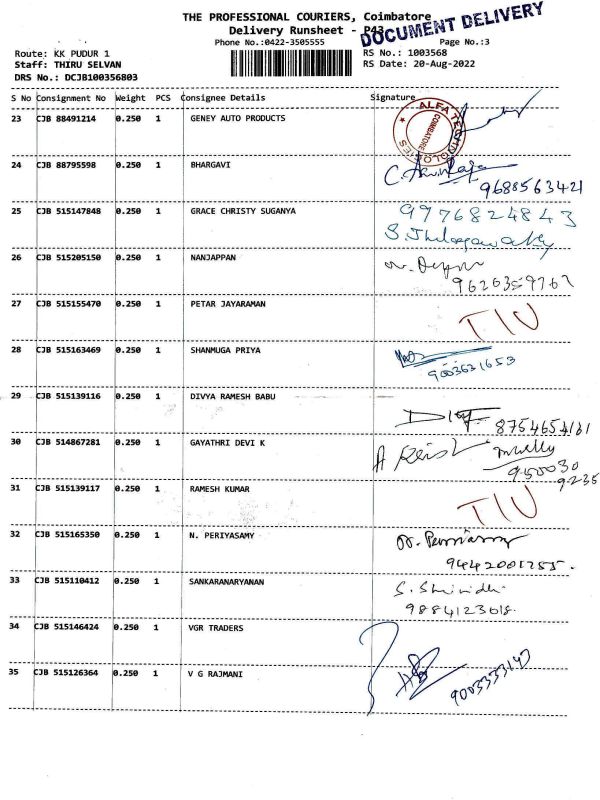 THE PROFESSIONAL COURIERS, Coimbatore
Delivery Runsheet - P43
DOCUMENT DELIVERY
Phone No.:0422-3505555
Page No.:3
Route: KK PUDUR 1
RS No.: 1003568
Staff: THIRU SELVAN
RS Date: 20-Aug-2022
DRS No.: DCJB100356803
S No Consignment No Weight PCS Consignee Details Signature
23 CJB 88491214 0.250 1 GENEY AUTO PRODUCTS
COIMBATORE
24 CJB 88795598 0.250 1 BHARGAVI
9688563421
25 CJB 515147848 0.250 1 GRACE CHRISTY SUGANYA 9976824843
26 CJB 515205150 0.250 1 NANJAPPAN
27 CJB 515155470 0.250 1 PETAR JAYARAMAN
28 CJB 515163469 0.250 1 SHANMUGA PRIYA
9003631653
29 CJB 515139116 0.250 1 DIVYA RAMESH BABU
30 CJB 514867281 0.250 1 GAYATHRI DEVI K
31 CJB 515139117 0.250 1 RAMESH KUMAR
32 CJB 515165350 0.250 1 N. PERIYASAMY
9442001255.
33 CJB 515110412 0.250 1 SANKARANARYANAN
9884123018.
34 CJB 515146424 0.250 1 VGR TRADERS
35 CJB 515126364 0.250 1 V G RAJMANI